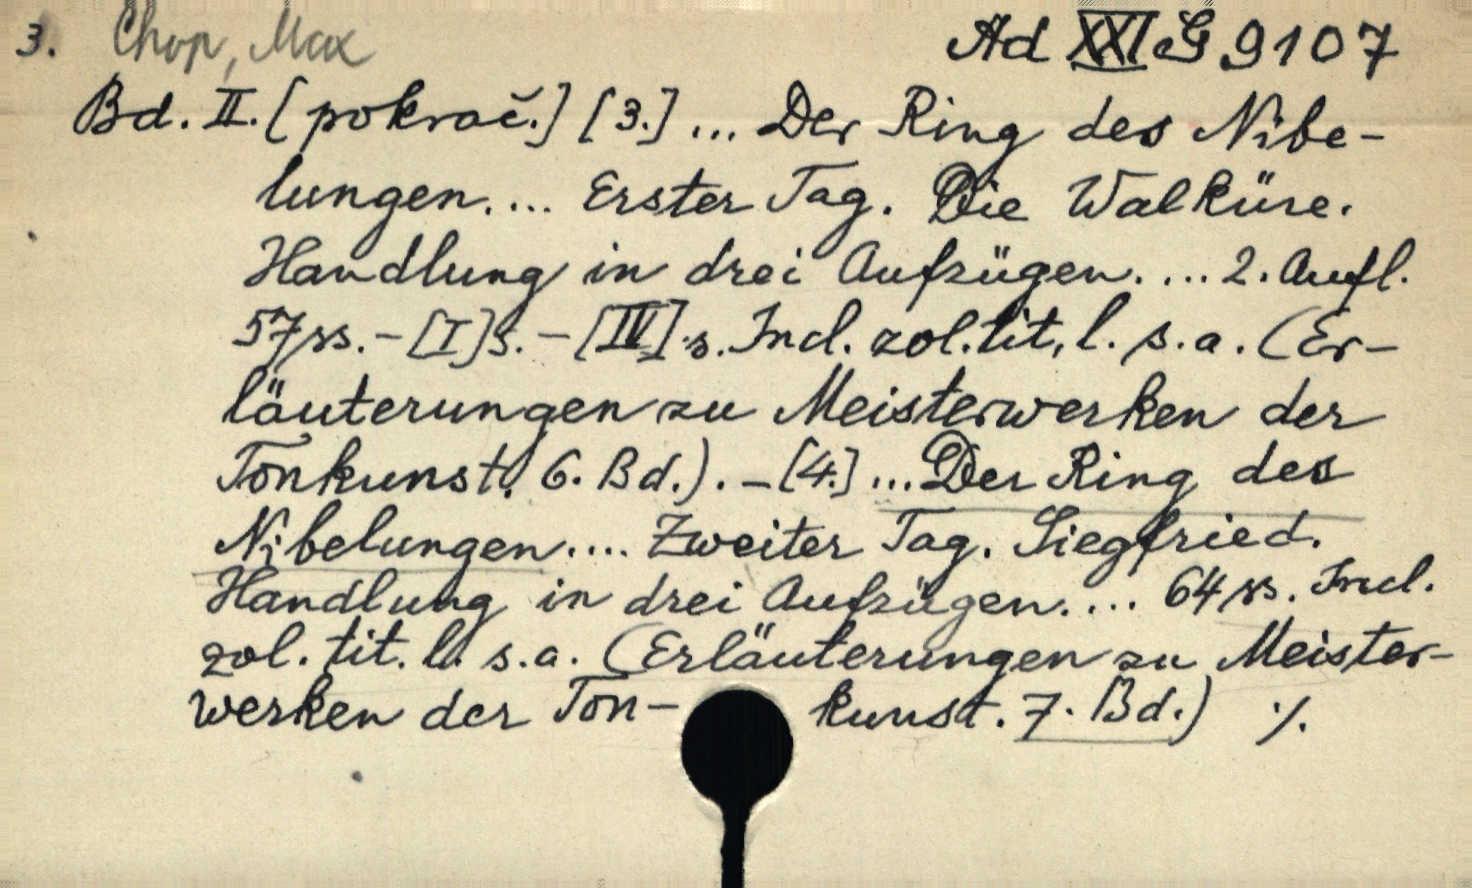 3. Chop, Max Ad XXI G 9107
Bd. II. [pokrač.] [3.] ... Der Ring des Nibe-
lungen.... Erster Tag. Die Walküre.
Handlung in drei Aufzügen.... 2. Aufl.
57 ss. - [I] s. - [IV] s. Incl. zol. tit. l. s. a. (Er-
läuterungen zu Meisterwerken der
Tonkunst. 6. Bd.). - [4.] ... Der Ring des
Nibelungen.... Zweiter Tag. Siegfried.
Handlung in drei Aufzügen.... 64 ss. Incl.
zol. tit. l. s. a. (Erläuterungen zu Meister-
werken der Ton- kunst. 7. Bd.) ·/.